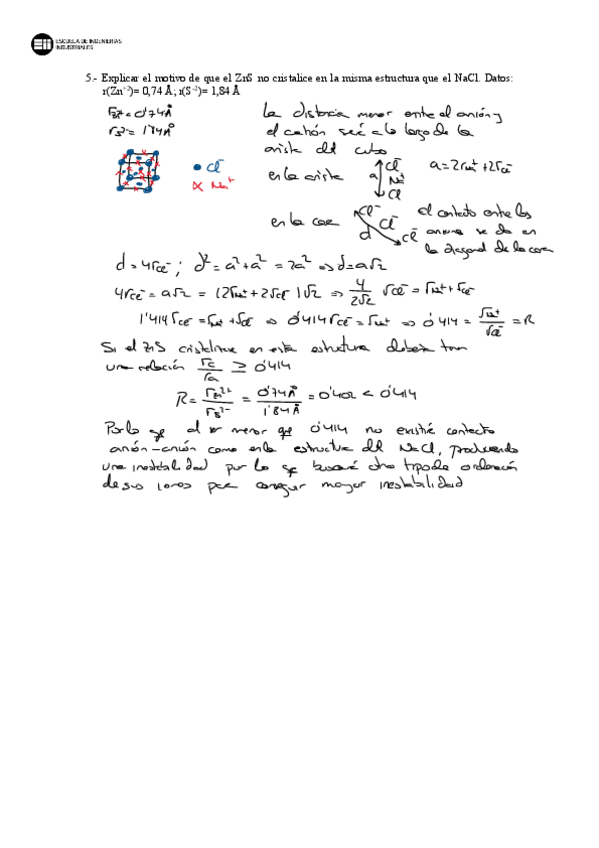 ESCUELA DE INGENIERÍAS
INDUSTRIALES
5.- Explicar el motivo de que el ZnS no cristalice en la misma estructura que el NaCl. Datos:
r(Zn⁺²)= 0,74 Å; r(S⁻²)= 1,84 Å
r Zn²⁺ = 0'74 Å
r S²⁻ = 1'84 Å
La distancia menor entre el anión y
el catión será a lo largo de la
arista del cubo
• Cl⁻
x Na⁺
en la arista
a
Cl⁻
Na⁺
Cl⁻
a = 2rNa⁺ + 2rCl⁻
en la cara
d
Cl⁻
Cl⁻
Cl⁻
el contacto entre los
aniones se da en
la diagonal de la cara
d = 4rCl⁻ ; d² = a² + a² = 2a² ⇒ d = a√2
4rCl⁻ = a√2 = (2rNa⁺ + 2rCl⁻)√2 ⇒ 4/2√2 rCl⁻ = rNa⁺ + rCl⁻
1'414 rCl⁻ = rNa⁺ + rCl⁻ ⇒ 0'414 rCl⁻ = rNa⁺ ⇒ 0'414 = rNa⁺/rCl⁻ = R
Si el ZnS cristalizase en esta estructura debería tener
una relación rc/ra ≥ 0'414
R = rZn²⁺/rS²⁻ = 0'74Å/1'84Å = 0'402 < 0'414
Por lo que al ser menor que 0'414 no existiría contacto
anión-anión como en la estructura del NaCl, produciendo
una inestabilidad por lo que buscará otro tipo de ordenación
de sus iones para conseguir mayor inestabilidad